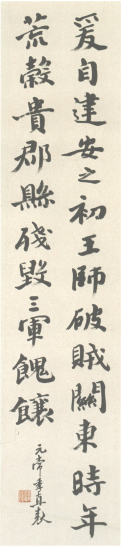 爰自建安之初王師破賊關東時年
荒穀貴郡縣殘毀三軍餽饟
元常季直表